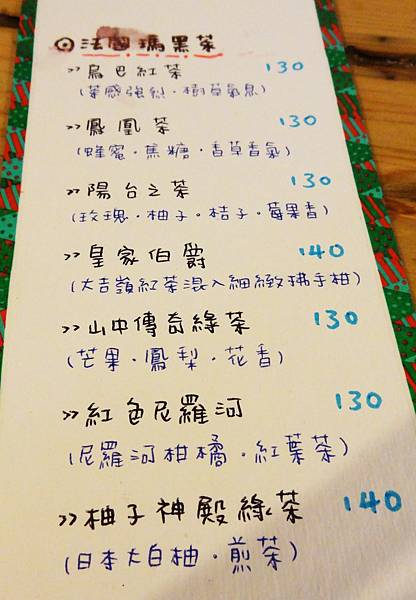 ⊙法國瑪黑茶
>>烏巴紅茶 130
(茶感強烈·樹草氣息)
>>鳳凰茶 130
(蜂蜜·焦糖·香草香氣)
>>陽台之茶 130
(玫瑰·柚子·桔子·莓果香)
>>皇家伯爵 140
(大吉嶺紅茶混入細緻拂手柑)
>>山中傳奇綠茶 130
(芒果·鳳梨·花香)
>>紅色尼羅河 130
(尼羅河柑橘·紅葉茶)
>>柚子神殿綠茶 140
(日本大白柚·煎茶)